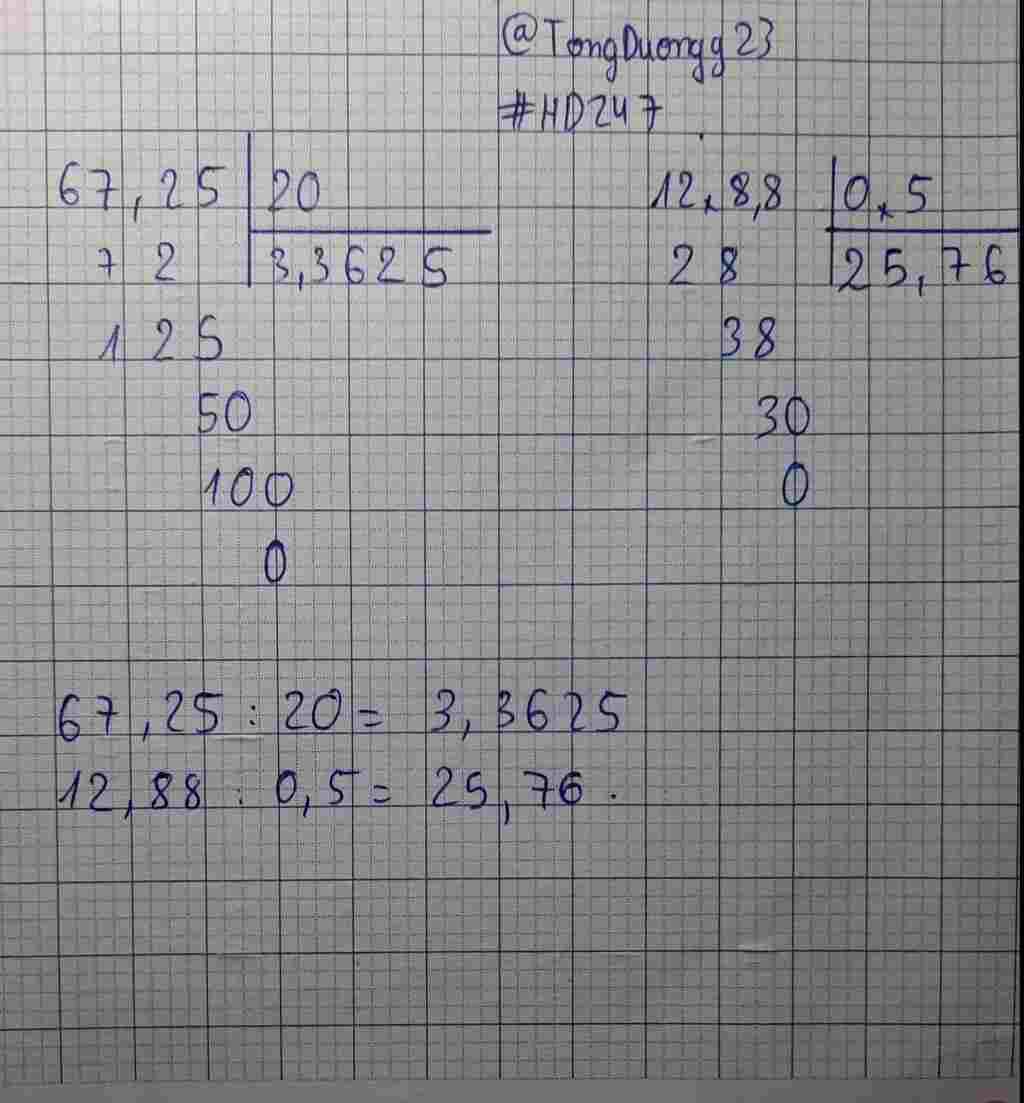 @TongDuongg23
#HD247
67,25 20
7 2 3,3625
125
50
100
0
12,8,8 0,5
28 25,76
38
30
0
67,25 : 20 = 3,3625
12,88 : 0,5 = 25,76.